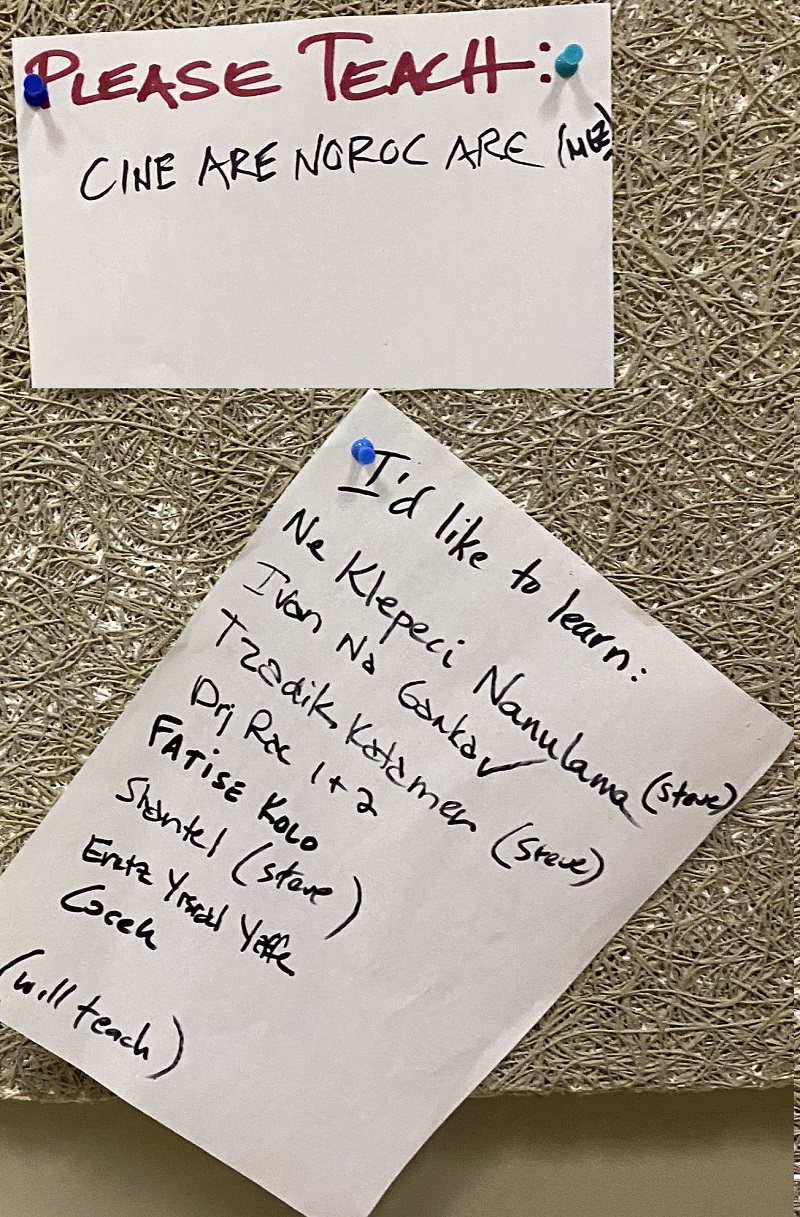 PLEASE TEACH:
CINE ARE NOROC ARE (MLZ)
I'd like to learn:
Ne Klepeci Nanulama (Steve)
Ivan Na Gankav
Tzadik Katamer (Steve)
Drj Rac 1+2
FATISE KOLO
Shantel (Steve)
Eretz Yisrael Yaffe
Cocek
(will teach)